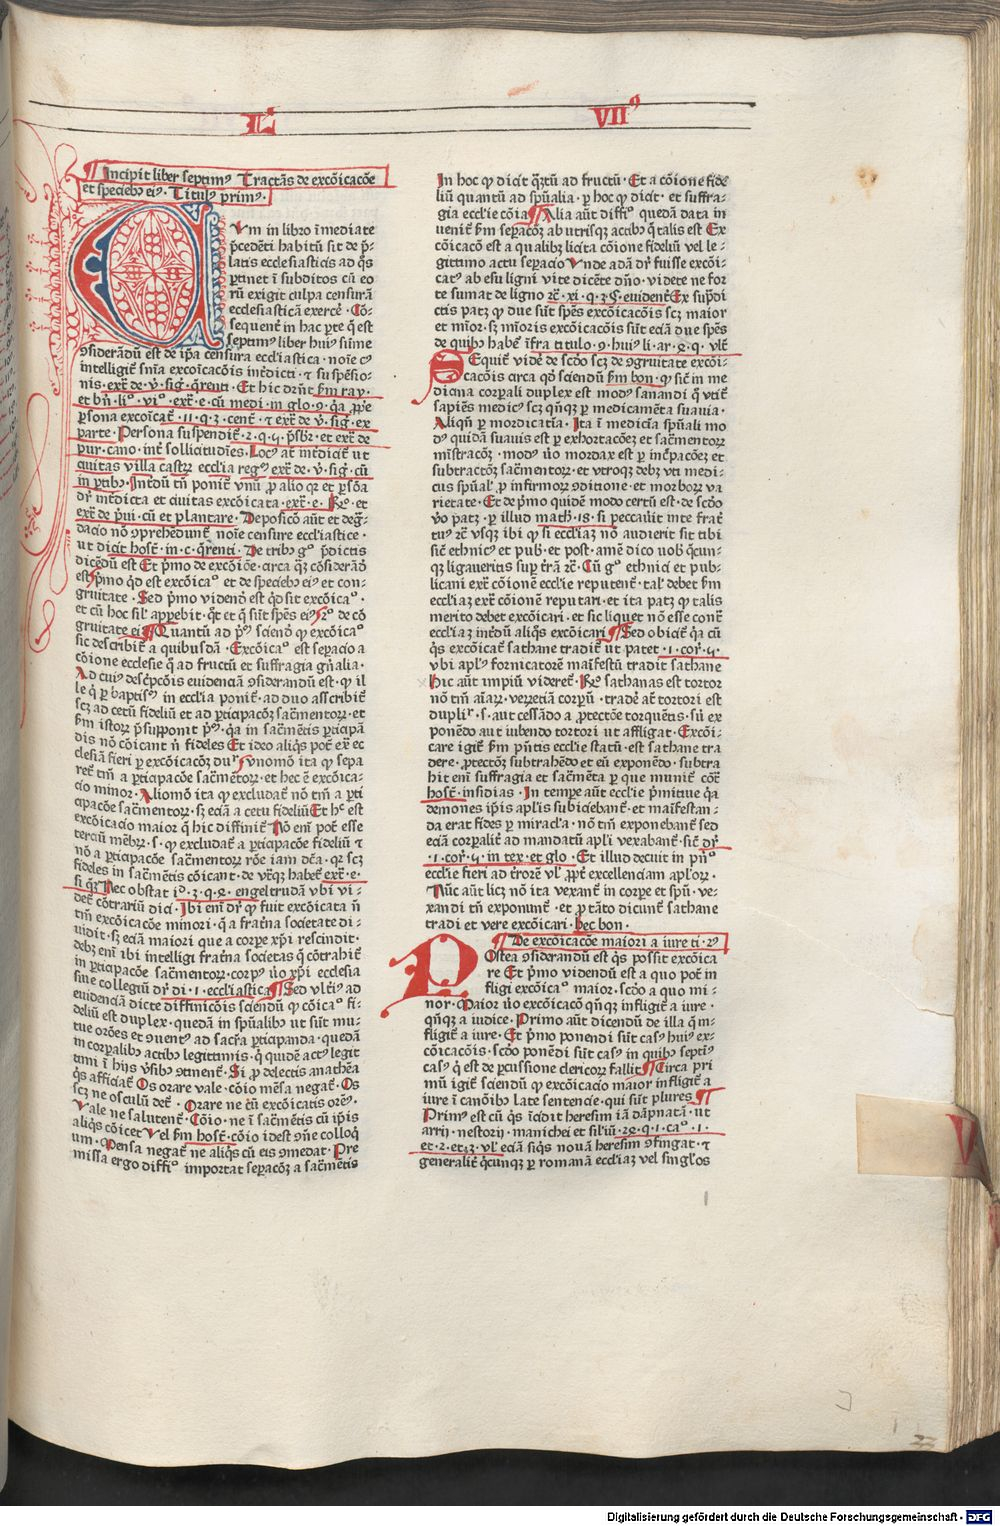 L VIIꝰ
Incipit liber septimꝰ Tractās de excōicacōe
et speciebꝫ eiꝰ. Titulꝰ primꝰ.
Cvm in libro īmediate
p̄cedēti habitū sit de p̄-
latis ecclesiasticis ad q̄s
ꝑtinet ī subditos cū eo
rū exigit culpa censurā
ecclesiasticā exercē. Cō-
sequenṫ in hac ꝑte q̄ est
septimꝰ liber huiꝰ sūme
ꝯsiderādū est de ip̄a censura eccl̓iastica. noīe cꝰ
intelligiṫ sn̄ia excoīcacōis intᵉdicti. ⁊ suspēsio-
nis. ext̄ de. v̓. sig̓. q̄renti. Et hic
parte. Persona suspendiṫ
pur. cano. intᵉ sollicitudīes. Locꝰ aūt intᵉdiciṫ ut
ciuitas villa castꝝ eccl̓ia regꝰ ext̄ de. v̓. sig̓. cū
in ꝑtibꝫ. Intᵉdū tn̄ poniṫ vnū ꝓ alio
dr̄ intᵉdicta et ciuitas excōicata. ext̄. e.
ext̄ de p̓ui. cū et plantare. Deposicō aūt et deg̓-
dacio nō ꝯprehēdunṫ noīe censure eccl̓iastice.
ut dicit hosṫ. in. c. q̄renti. De tribꝫ gͦ p̄dictis
dicēdū est Et p̓mo de excōiōe. circa qͣꝫ cōsiderādū
est p̓mo qͥd est excōicaͦ et de speciebꝫ eiꝰ et con-
gruitate. Sed p̓mo videnḋ est qͥd sit excōicaͦ.
et cū hoc sil̓ appebit. qͦt et q̄ sūt sp̄es eiꝰ. 2ͦ de cō
gruitate ei ¶ Quantū ad pͫ scienḋ ꝙ excōicaͦ
sic describiṫ a quibusdā. Excōicaͦ est seꝑacio a
cōione ecclesie q̄ ad fructū et suffragia gn̄alia.
Ad cuiꝰ descͥpcōis euidenciā ꝯsiderandū est. ꝙ il
le qͥ ꝑ baptismͫ in eccl̓ia poniṫ. ad duo ascribiṫ
scꝫ ad cetū fideliū et ad ꝑticipacōꝫ sac̄mentoꝝ. et
fm̄ istoꝝ p̄supponit pͫ. qͥa in sac̄mētis ꝑticipā
dis nō cōicant nͥ fideles Et ideo aliqͥs poṫ exᵉ ec
clesiā fieri ꝑ excōicacōꝫ dupͬ Vnomō ita ꝙ sepa
reṫ tm̄ a ꝑticipacōe sac̄mētoꝝ. et hec ē excōica-
cio minor. Aliomō ita ꝙ excludaṫ nō tm̄ a ꝑti
cipacōe sac̄mentoꝝ. sꝫ eciā a cetu fideliū Et hᵉ est
excōicacio maior q̄ hic diffiniṫ Nō enī poṫ esse
terciū mēbꝝ. s. ꝙ excludaṫ a ꝑticipacōe fideliū ⁊
nō a ꝑticipacōe sac̄mentoꝝ rōe iam dc̄a. qꝛ scꝫ
fideles in sac̄mētis cōicant. de vͭꝫ habeṫ ext̄. e.
si qͥꝫ Nec obstat iͦ. 3. q. 4. engeltrudā vbi vi-
deṫ cōtrariū dici. Ibi enī dr̄ ꝙ fuit excōicata nͦ
tm̄ excōicacōe minori. q̄ a fratͣna societate di-
uidit. sꝫ eciā maiori que a corꝑe xp̄i rescindit.
debꝫ enī ibi intelligi fratͣna societas q̄ cōtrahiṫ
in ꝑticipacōe sac̄mentoꝝ. corpꝰ v̓o xp̄i ecclesia
siue collegiū dr̄ di. 1. eccl̓iastica. ¶ Sed vltᵉiꝰ ad
euidenciā dicte diffinicōis sciendū ꝙ cōicaͦ fi-
deliū est duplex. quedā in spūalibꝫ ut sūt mu-
tue orōes et ꝯuentꝰ ad sacͣ ꝑticipanda. quedā
in corꝑalibꝫ actibꝫ legittimis. q̄ quidē actꝰ legit
timi ī hijs v̓sibꝫ ꝯtinenṫ. Si ꝓ delectis anathēa
qͥs afficiaṫ Os orare vale. cōio mēsa negaṫ. Os
scꝫ ne osculū deṫ. Orare ne cū excōicatis oreṫ.
Vale ne salutenṫ. Cōio. ne ī sac̄mētis cū ip̄is
aliqͥs cōicet Vel fm̄ hosṫ. cōio idest ꝯ̄ne colloqͥ
um. Mensa negaṫ ne aliqͥs cū eis ꝯmedat. Pre
missa ergo diffiͦ importat seꝑacōꝫ a sac̄mētis
In hoc ꝙ dicit qͣꝫtū ad fructū. Et a cōione fide
liū quantū ad spūalia. ꝑ hoc ꝙ dicit. et suffra-
gia eccl̓ie cōia ¶ Alia aūt diffiͦ quedā data in
ueniṫ fm̄ seꝑacōꝫ ab utrisqꝫ actibꝫ q̄ talis est Ex
cōicacō est a qualibꝫ licita cōione fideliū vel le-
gittimo actu seꝑacio Vnde adā dr̄ fuisse excōi-
catꝰ ab esu ligni vite dicēte dn̄o. videte ne for
te sumat de ligno ⁊c̄. xi. q. 3. §. euidenṫ Ex sup̄di
ctis patꝫ ꝙ due sūt sp̄es excōicacōis scꝫ maior
et mīor. sꝫ mīoris excōicacōis sūt eciā due sp̄es
de quibꝫ habeṫ īfra titulo. 9. huiꝰ li. ar. 4. q. vlṫ
Sequiṫ videᵉ de scd̄o scꝫ de ꝯgruitate excōi-
cacōis circa qd̄ sciendū fm̄ bon. ꝙ sic̄ in me
dicina corꝑali duplex est modꝰ sanandi q̄ vtiṫ
sapiēs medicꝰ scꝫ qn̄qꝫ ꝑ medicamēta suauia.
Aliqn̄ ꝑ mordicatīa. Ita ī medicīa spūali mo
dꝰ quidā suauis est ꝑ exhortacōeꝫ et sac̄mentoꝝ
mīstracōꝫ. modꝰ v̓o mordax est ꝑ incͥpacōeꝫ et
subtractōꝫ sac̄mentoꝝ. et vtroqꝫ debꝫ vti medi-
cus spūal̓ ꝓ infirmoꝝ ꝯditione. et morboꝝ va
rietate. Et de p̓mo quidē modo certū est. de scd̄o
v̓o patꝫ. ꝑ illud math̓. 18. si peccauīt inte frat̄
tuꝰ ⁊c̄ vsqꝫ ibi ꝙ si eccl̓iaꝫ nō audierit sit tibi
sic̄ ethnicꝰ et pub. et post. amē dico uob̓ q̄cun-
qꝫ ligaueritis suꝑ t̄rā ⁊c̄. Cū gͦ ethnici et pub-
licani ext̄ cōionē eccl̓ie reputenṫ. tal̓ debet fm̄
eccl̓iaꝫ ext̄ cōionē reputari. et ita patꝫ ꝙ talis
merito debet excōicari. et sic liquet nō esse contᵉ
eccl̓iaꝫ intᵉdū aliqͥs excōicari ¶ Sed obiciṫ qͥa cū
qͥs excōicaṫ sathane tradiṫ ut patet. 1. cor̓. 5.
vbi apl̓ꝰ fornicatorē maīfestū tradit sathane
hic aūt impiū videreṫ. R̓ꝫ sathanas est tortor
nō tm̄ aīaꝝ. veꝝetiā corpꝝ. tradᵉ aṫ tortori est
duplͬ. s. aut cessādo a ꝓtectōe torquētis. sūꝫ ex
ponēdo aut iubendo tortori ut affligat. Excōi-
care igiṫ fm̄ pn̄tis eccl̓ie statū. est sathane tra
dere. ꝓtectōꝫ subtrahēdo et eū exponēdo. subtra
hit enī suffragia et sac̄mēta ꝑ que muniṫ cōt̄
hosṫ. insidias. In tempe aūt eccl̓ie p̓mitiue qͥa
demones ip̄is apl̓is subiciebanṫ. et maīfestan-
da erat fides ꝑ miracl̓a. nō tm̄ exponebanṫ sed
eciā corꝑaliṫ ad mandatū apl̓i vexabanṫ. sic̄ dr̄
.1. cor̓. 5. in tex. et glo. Et illud decuit in pn̄ͦ
eccl̓ie fieri ad ťrorē vl̓ ꝓpṫ excellenciam apl̓oꝝ.
Nūc aūt licꝫ nō ita vexanṫ in corꝑe et spū. ve-
xandi tn̄ exponunṫ. et ꝓ tāto dicunṫ sathane
tradi et vere excōicari. hec bon.
¶ De excōicacōe maiori a iure ti. 2ꝰ
Postea ꝯsiderandū est qͥs possit excōica
re Et p̓mo videndū est a quo poṫ in
fligi excōicaͦ maior. scd̄o a quo mi-
nor. Maior v̓o excōicacō qn̄qꝫ infligiṫ a iure.
qn̄qꝫ a iudice. Primo aūt dicendū de illa q̄ in-
fligiṫ a iure. Et p̓mo ponendi sūt casꝰ huiꝰ ex-
cōicacōis. scd̄o ponēdi sūt casꝰ in quibꝫ septīꝰ
casꝰ q̄ est de ꝑcussione clericoꝝ fallit ¶ Circa pri
mū igiṫ sciendū ꝙ excōicacio maior infligiṫ a
iure ī canōibꝫ late sentencie. qui sūt plures ¶
Primꝰ est cū qͥs īcidit heresim iā dāpnatā. ut
arrij. nestorij. manichei et sil̓iū. 24. q. 1. caͦ. 1.
et. 2. et. 3. vl̓ eciā siqͥs nouā heresim ꝯfingat. ⁊
generaliṫ q̄cunqꝫ ꝑ romanā eccl̓iaꝫ vel singl̓os
33
Digitalisierung gefördert durch die Deutsche Forschungsgemeinschaft - DFG